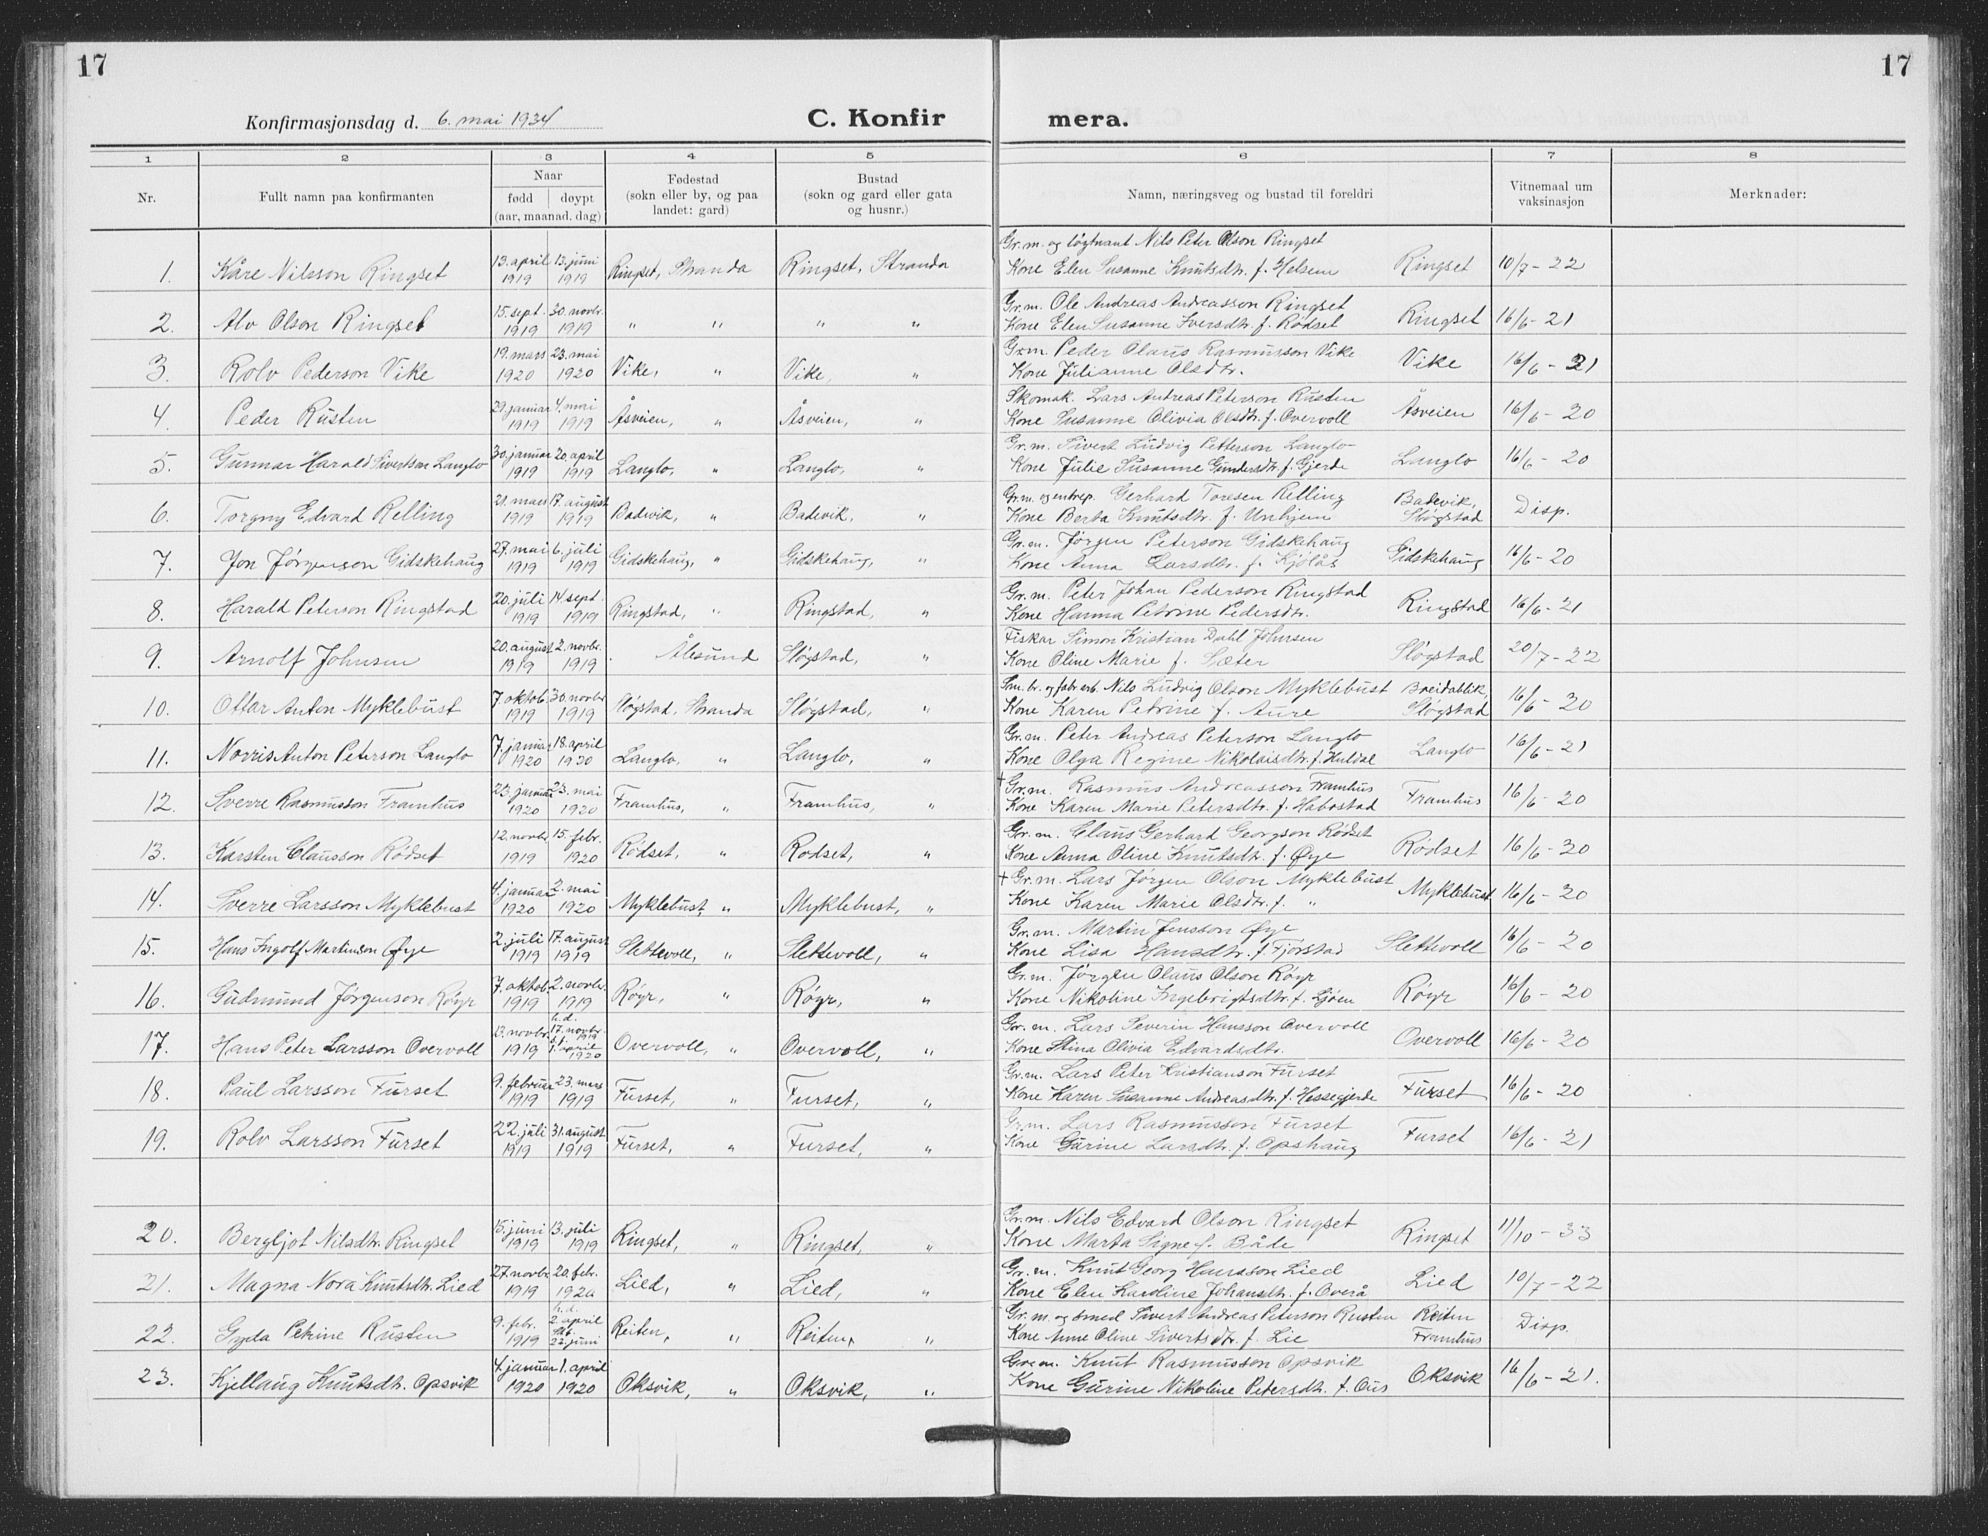 17
17
Konfirmasjonsdag d. 6. mai 1934
C. Konfir mera.
1 2 3 4 5 6 7 8
Nr.
Fullt namn paa konfirmanten
Naar
fødd døypt
(aar, maanad, dag)
Fødestad
(sokn eller by, og paa
landet: gard)
Bustad
(sokn og gard eller gata
og husnr.)
Namn, næringsveg og bustad til foreldri
Vitnemaal um
vaksinasjon
Merknader:
1. Kåre Nilsson Ringset 13. april 1919 13. juni 1919 Ringset, Stranda Ringset, Stranda Gr.m. og løgtnant Nils Peter Olson Ringset
Kone Elen Susanne Knutsdtr. f. Helsem Ringset 10/7 - 22
2. Alv Olson Ringset 15. sept. 1919 30. novbr. 1919 " " " " Gr.m. Ole Andreas Andreasson Ringset
Kone Elen Susanne Iversdtr. f. Rødset Ringset 16/6 - 21
3. Rolv Pederson Vike 19. mars 1920 23. mai 1920 Vike, " Vike, " Gr.m Peder Olaus Rasmusson Vike
Kone Julianne Olsdtr. Vike 16/6 - 21
4. Peder Rusten 29. januar 1919 4. mai 1919 Åsveien, " Åsveien, " Skomak. Lars Andreas Peterson Rusten
Kone Susanne Olivia Olsdtr. f. Overvoll Åsveien 16/6 - 20
5. Gunnar Harald Sivertson Langlo 30. januar 1919 20. april 1919 Langlo, " Langlo, " Gr.m. Sivert Ludvig Petterson Langlo
Kone Julie Susanne Gundersdtr. f. Gjerde Langlo 16/6 - 20
6. Torgny Edvard Relling 21. mars 1919 17. august 1919 Badevik, " Badevik, " Gr.m. og entrep. Gerhard Toresen Relling
Kone Berta Knutsdtr. f. Urkjem Badevik, Sløgstad Disp.
7. Jon Jørgenson Gidskehaug 27. mai 1919 6. juli 1919 Gidskehaug, " Gidskehaug, " Gr.m. Jørgen Peterson Gidskehaug
Kone Anna Larsdtr. f. Kjølås Gidskehaug 16/6 - 20
8. Harald Peterson Ringstad 20. juli 1919 14. sept. 1919 Ringstad, " Ringstad, " Gr.m. Peter Johan Pederson Ringstad
Kone Hanna Petrine Pedersdtr. Ringstad 16/6 - 21
9. Arnolf Johnsen 20. august 1919 2. novbr. 1919 Ålesund Sløgstad, " Fiskar Simon Kristian Dahl Johnsen
Kone Oline Marie f. Sæter Sløgstad 20/7 - 22
10. Ottar Anton Myklebust 7. oktob. 1919 30. novbr 1919 Sløgstad, Stranda Sløgstad, " Sm.br. og fabr.arb. Nils Ludvig Olson Myklebust
Kone Karen Petrine f. Aure Breidablik, Sløgstad 16/6 - 20
11. Norris Anton Peterson Langlo 7. januar 1920 18. april 1920 Langlo, " Langlo, " Gr.m. Peter Andreas Peterson Langlo
Kone Olga Regine Nikolaisdtr. f. Huldal Langlo 16/6 - 21
12. Sverre Rasmusson Framhus 23. januar 1920 23. mai 1920 Framhus, " Framhus, " † Gr.m. Rasmus Andreasson Framhus
Kone Karen Marie Petersdtr. f. Habostad Framhus 16/6 - 20
13. Karsten Clausson Rødset 12. novbr. 1919 15. febr. 1920 Rødset, " Rødset, " Gr.m. Claus Gerhard Georgson Rødset
Kone Anna Oline Knutsdtr. f. Øye Rødset 16/6 - 20
14. Sverre Larsson Myklebust 4. januar 1920 2. mai 1920 Myklebust, " Myklebust, " † Gr.m. Lars Jørgen Olson Myklebust
Kone Karen Marie Olsdtr. f. " Myklebust 16/6 - 20
15. Hans Ingolf Martinson Øye 2. juli 1919 17. august 1919 Slettevoll, " Slettevoll, " Gr.m. Martin Jensson Øye
Kone Lisa Hansdtr. f. Fjørstad Slettevoll 16/6 - 20
16. Gudmund Jørgenson Røyr 7. oktob. 1919 2. novbr. 1919 Røyr, " Røyr, " Gr.m. Jørgen Olaus Olson Røyr
Kone Nikoline Ingebrigtsdtr. f. Ljøen Røyr 16/6 - 20
17. Hans Peter Larsson Overvoll 3. novbr. 1919 h.d. 17. novbr. 1919 1. april 1920 Overvoll, " Overvoll, " Gr.m. Lars Severin Hansson Overvoll
Kone Stina Olivia Edvardsdtr. Overvoll 16/6 - 20
18. Paul Larsson Furset 9. februar 1919 23. mars 1919 Furset, " Furset, " Gr.m. Lars Peter Kristianson Furset
Kone Karen Susanne Andreasdtr. f. Hessegjerde Furset 16/6 - 20
19. Rolv Larsson Furset 22. juli 1919 31. august 1919 Furset, " Furset, " Gr.m. Lars Rasmusson Furset
Kone Gurine Larsdtr. f. Opshaug Furset 16/6 - 21
20. Bergljot Nilsdtr. Ringset 15. juni 1919 13. juli 1919 Ringset, " Ringset, " Gr.m. Nils Edvard Olson Ringset
Kone Marta Signe f. Både Ringset 11/10 - 33
21. Magna Nora Knutsdtr. Lied 27. novbr. 1919 20. febr. 1920 Lied, " Lied, " Gr.m. Knut Georg Hansson Lied
Kone Elen Karoline Johansdtr. f. Overå Lied 10/7 - 22
22. Gyda Petrine Rusten 9. febr. 1919 h.d. 2. april 22 juni Reiten, " Reiten, " Gr.m. og smed Sivert Andreas Peterson Rusten
Kone Anne Oline Sivertsdtr. f. Lie Reiten Framhus Disp.
23. Kjellaug Knutsdtr. Opsvik 4. januar 1920 1. april 1920 Oksvik, " Oksvik, " Gr.m. Knut Rasmusson Opsvik
Kone Gurine Nikoline Petersdtr. f. Aus Oksvik 16/6 - 21.